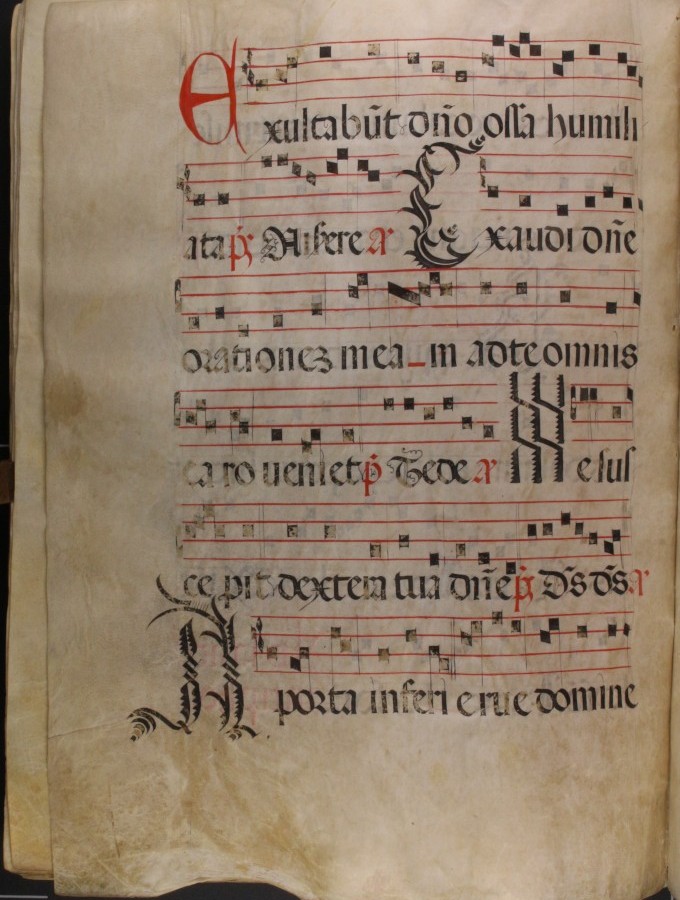 Exultabūt dño ossa humili
ata p̃s Miserere a Exaudi dñe
orationez mea_m ad te omnis
caro veniet p̃s Te de a Me sus
cepit dextera tua dñe p̃s Ds ds a
A porta inferi erue domine